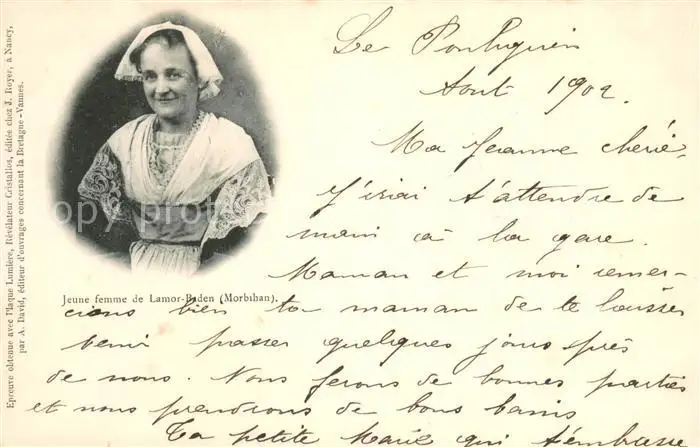 Le Pouliguen
Aout 1902.
Ma Jeanne chérie
J'irai t'attendre de
main à la gare.
Maman et moi remer-
cions bien ta maman de te laisser
venir passer quelques jours près
de nous. Nous ferons de bonnes parties
et nous prendrons de bons bains
Ta petite Marie qui t'embrasse
Jeune femme de Lamor-Baden (Morbihan).
Epreuve obtenue avec Plaque Lumière, Révélateur Cristallos, éditée chez J. Royer, à Nancy,
par A. David, éditeur d'ouvrages concernant la Bretagne-Vannes.